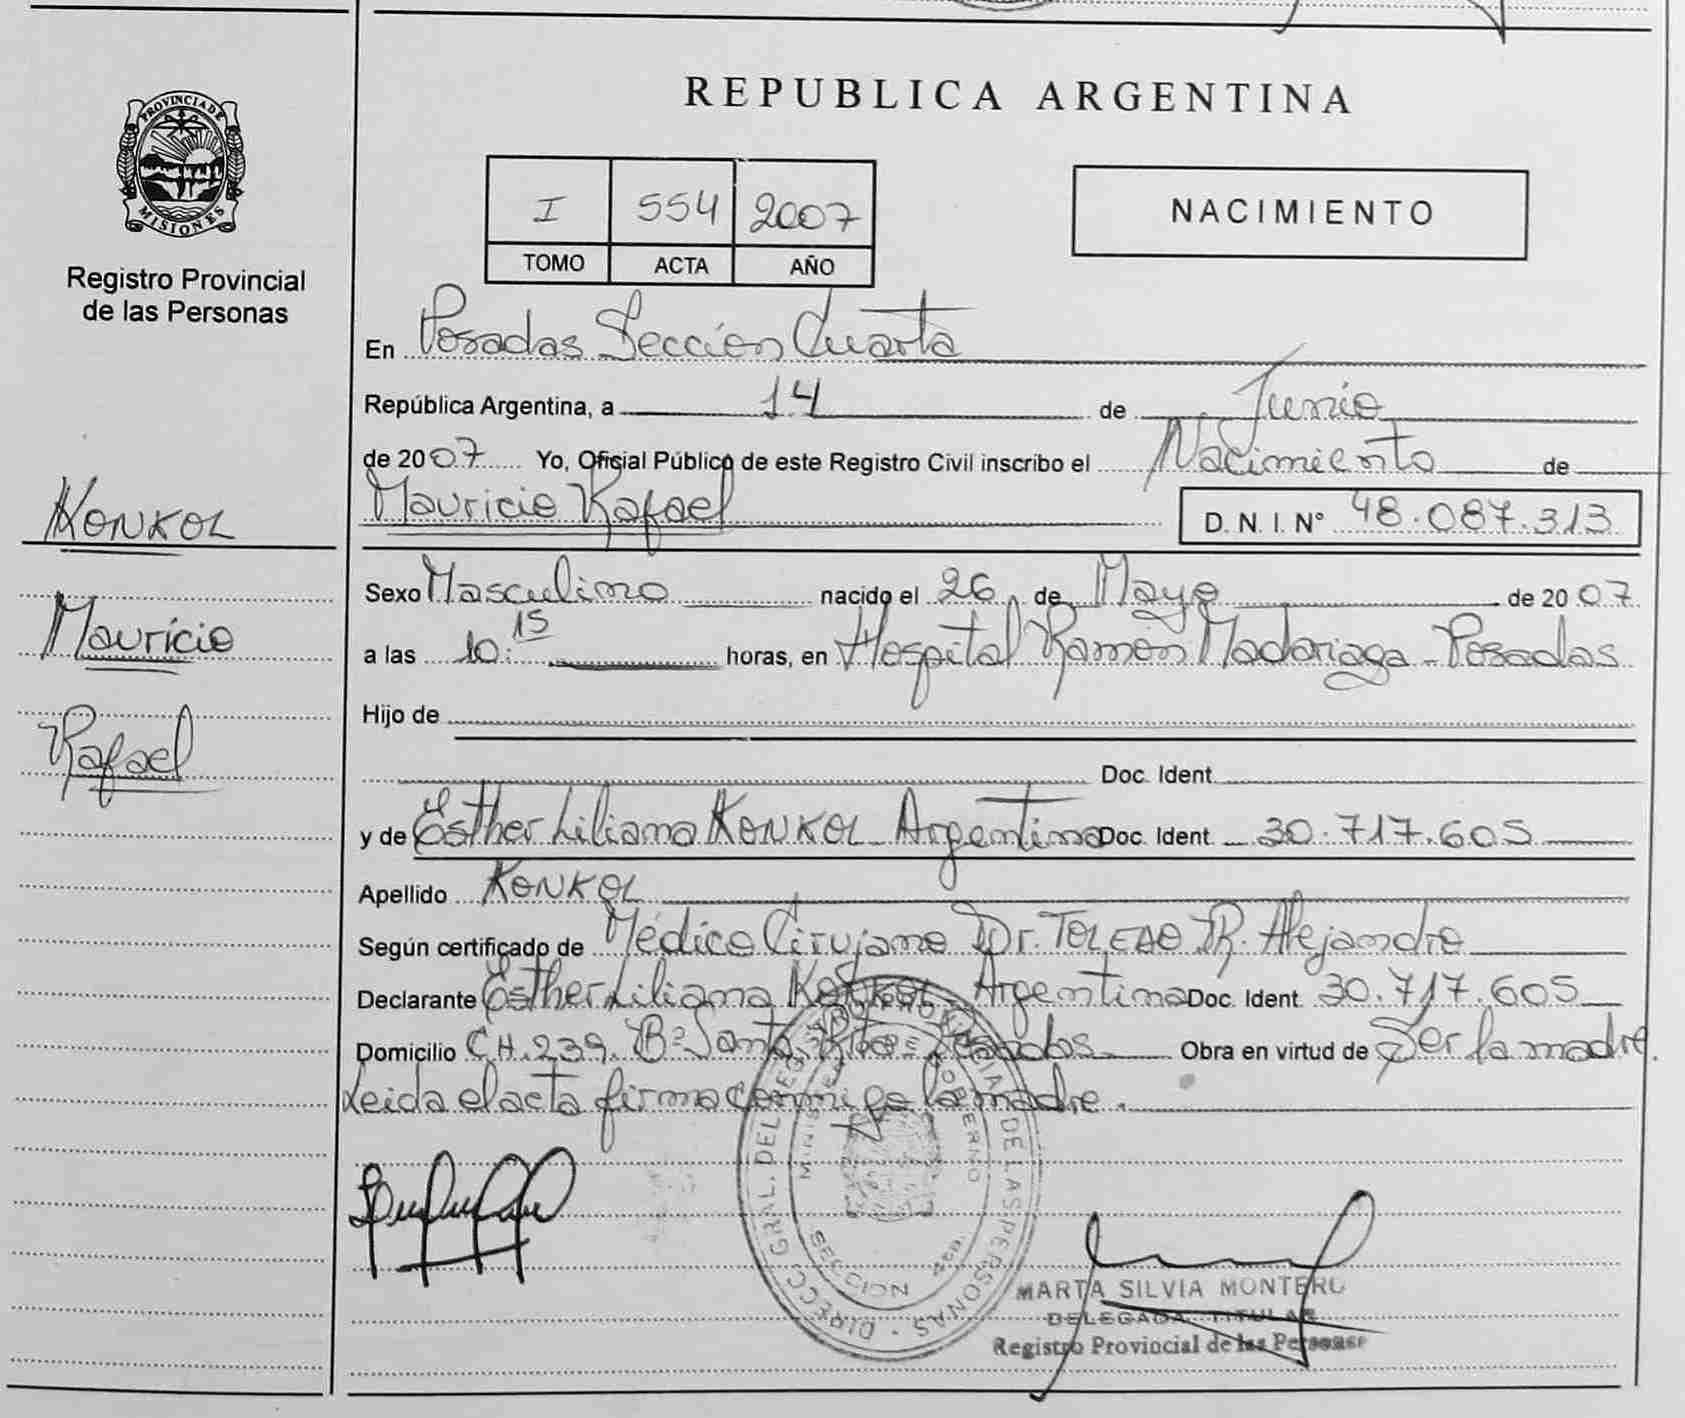 REPUBLICA ARGENTINA
PROVINCIA DE
MISIONES
Registro Provincial
de las Personas
I 554 2007
TOMO ACTA AÑO
NACIMIENTO
En Posadas Sección Cuarta
República Argentina, a 14 de Junio
de 2007 Yo, Oficial Público de este Registro Civil inscribo el Nacimiento de
Mauricio Rafael D. N. I. N° 48.087.313
KONKOL
Mauricio
Rafael
Sexo Masculino nacido el 26 de Mayo de 2007
a las 10:15 horas, en Hospital Ramón Madariaga - Posadas
Hijo de
Doc. Ident
y de Esther Liliana KONKOL - Argentina Doc. Ident 30.717.605
Apellido KONKOL
Según certificado de Médico Cirujano Dr. TOLEDO R. Alejandro
Declarante Esther Liliana KONKOL - Argentina Doc. Ident 30.717.605
Domicilio CH. 239. B° Santa Rita - Posadas Obra en virtud de Ser la madre.
Leida el acta firma conmigo la madre.
DIRECC. GRAL. DEL REG. PROVINCIAL DE LAS PERSONAS
MINISTERIO GOBIERNO
SECCION 4ta.
MARTA SILVIA MONTERO
DELEGADA TITULAR
Registro Provincial de las Personas